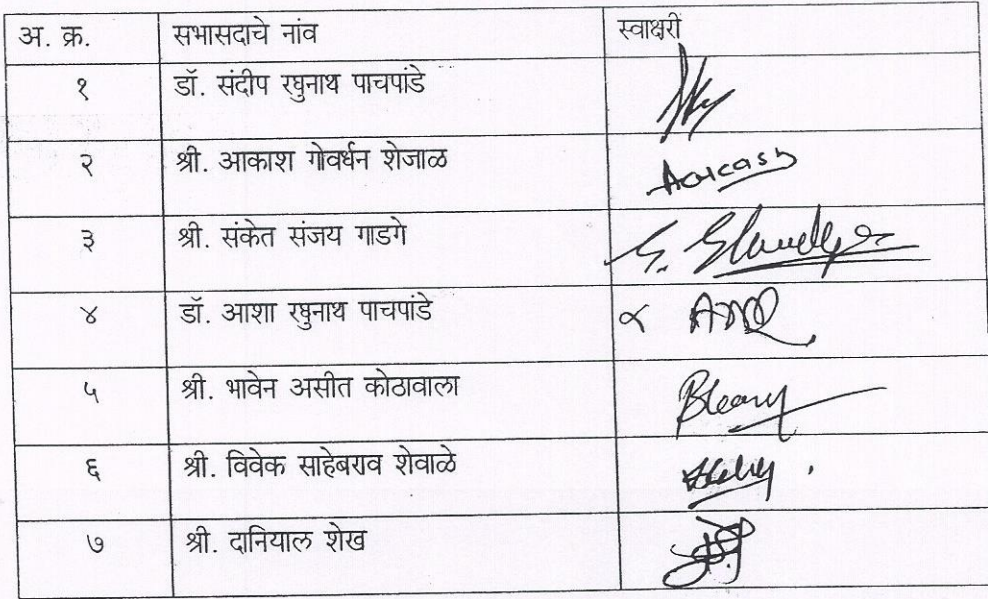 अ. क्र. सभासदाचे नांव स्वाक्षरी
१ डॉ. संदीप रघुनाथ पाचपांडे
२ श्री. आकाश गोवर्धन शेजाळ Aakash
३ श्री. संकेत संजय गाडगे
४ डॉ. आशा रघुनाथ पाचपांडे
५ श्री. भावेन असीत कोठावाला
६ श्री. विवेक साहेबराव शेवाळे
७ श्री. दानियाल शेख